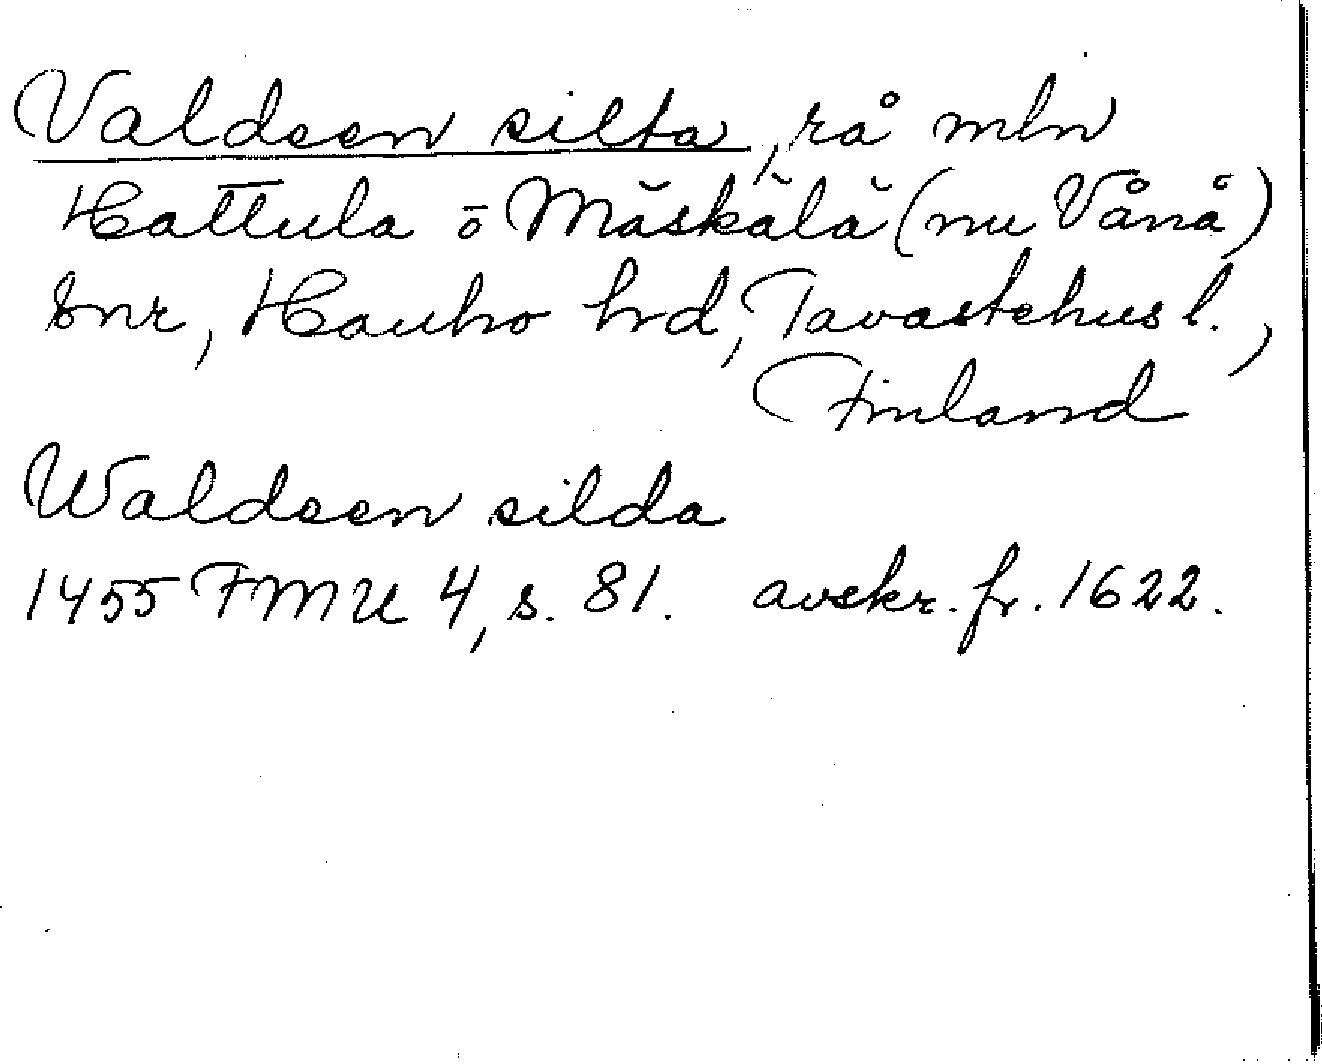 Valdsen silta, rå mln
Hattula ō Mäskälä (nu Vånå)
snr, Hauho hrd, Tavastehus l.,
Finland
Waldsen silda
1455 FMU 4, s. 81. avskr. fr. 1622.